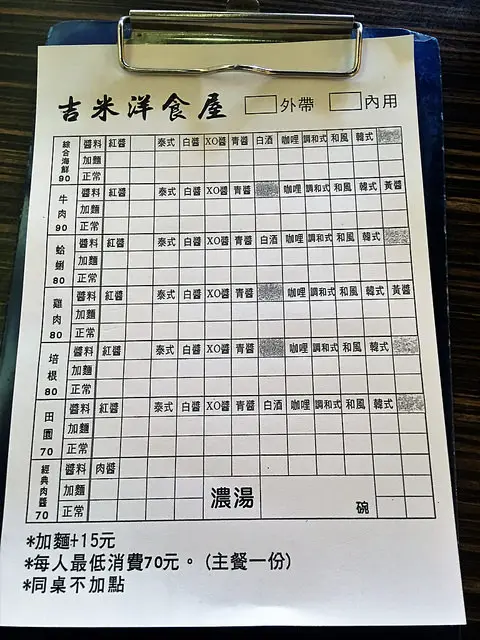 吉米洋食屋 外帶 內用
綜合海鮮90 醬料 紅醬 泰式 白醬 XO醬 青醬 白酒 咖哩 調和式 和風 韓式
加麵
正常
牛肉90 醬料 紅醬 泰式 白醬 XO醬 青醬 咖哩 調和式 和風 韓式 黃醬
加麵
正常
蛤蜊80 醬料 紅醬 泰式 白醬 XO醬 青醬 白酒 咖哩 調和式 和風 韓式
加麵
正常
雞肉80 醬料 紅醬 泰式 白醬 XO醬 青醬 咖哩 調和式 和風 韓式 黃醬
加麵
正常
培根80 醬料 紅醬 泰式 白醬 XO醬 青醬 咖哩 調和式 和風 韓式
加麵
正常
田園70 醬料 紅醬 泰式 白醬 XO醬 青醬 白酒 咖哩 調和式 和風 韓式
加麵
正常
經典肉醬70 醬料 肉醬
加麵
正常 濃湯 碗
*加麵+15元
*每人最低消費70元。(主餐一份)
*同桌不加點